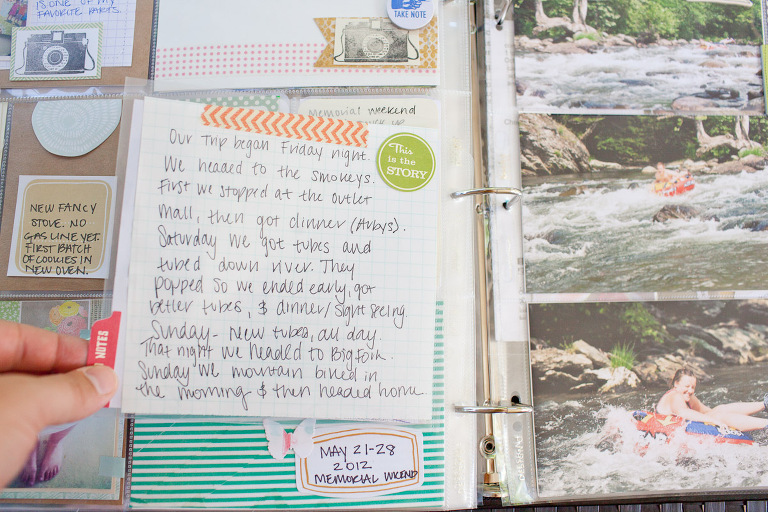 IS ONE OF MY
FAVORITE PARTS.
TAKE NOTE
memorial weekend
Our Trip began Friday night.
We headed to the smokeys.
First we stopped at the outlet
mall, then got dinner (Arbys).
Saturday we got tubes and
tubed down river. They
popped so we ended early, got
better tubes, & dinner/sight seeing.
Sunday - New tubes, all day.
That night we headed to Bigfork.
Sunday we mountain biked in
the morning & then headed home.
This
is the
STORY
NEW FANCY
STOVE. NO
GAS LINE YET.
FIRST BATCH
OF COOKIES IN
NEW OVEN.
NOTES
MAY 21-28
2012
MEMORIAL WKEND